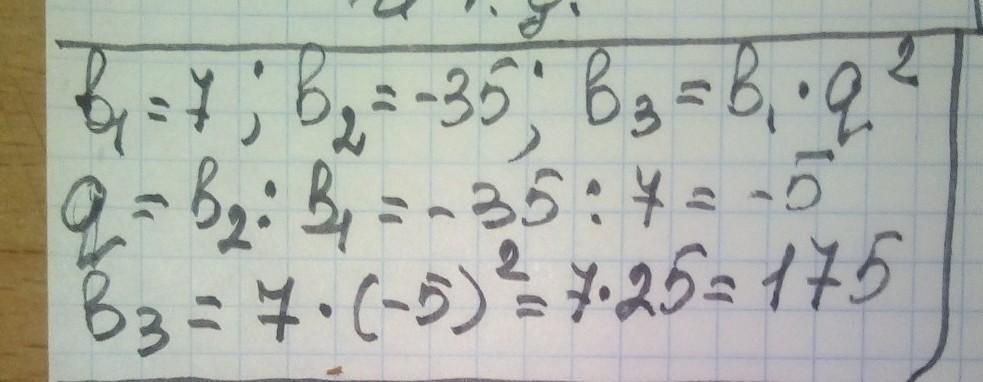 b₁ = 7; b₂ = -35; b₃ = b₁ · q²
q = b₂ : b₁ = -35 : 7 = -5
b₃ = 7 · (-5)² = 7 · 25 = 175